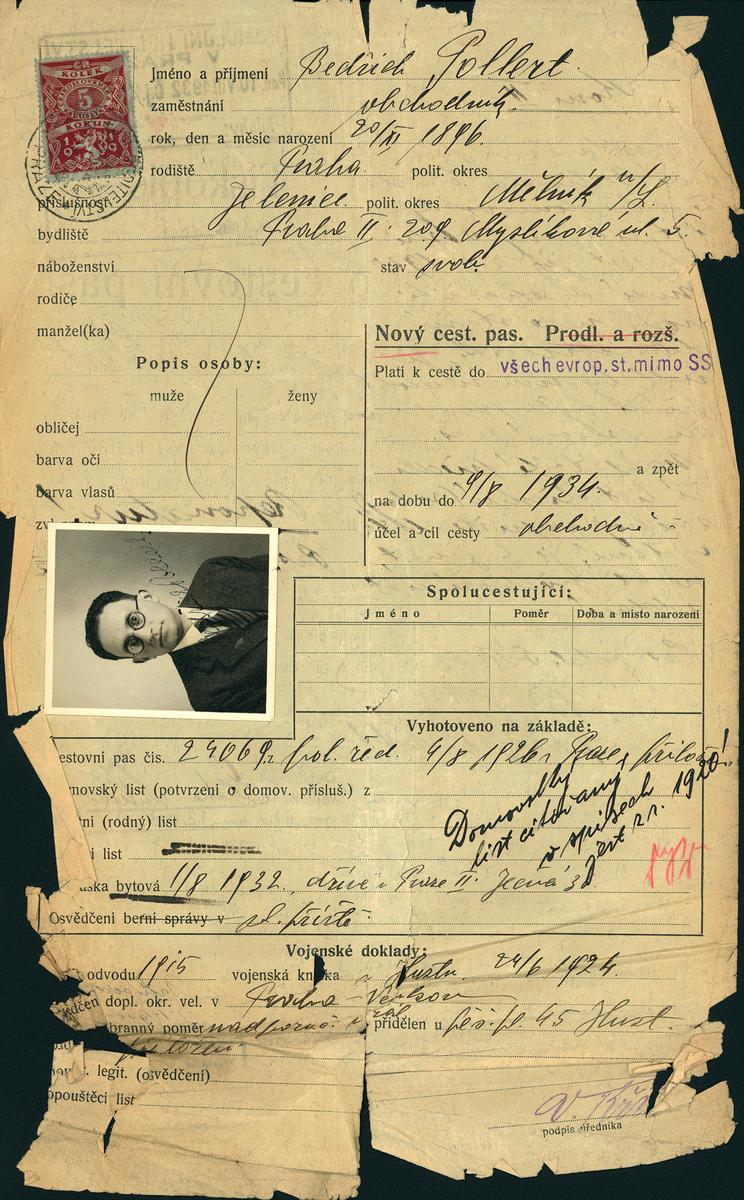 KOLEK
5
KORUN
1919
Jméno a příjmení Bedřich Pollert
zaměstnání obchodník.
rok, den a měsíc narození 20/XI 1896.
rodiště Praha polit. okres
příslušnost Jelenice polit. okres Mělník
bydliště Praha II. 209 Myslíkova ul. 5.
náboženství stav svob.
rodiče
manžel(ka)
Nový cest. pas. Prodl. a rozš.
Popis osoby:
Platí k cestě do všech evrop. st. mimo SS
muže ženy
obličej
barva očí
barva vlasů
a zpět
na dobu do 9/8 1934.
účel a cíl cesty obchodně
Spolucestující:
Jméno Poměr Doba a místo narození
Vyhotoveno na základě:
estovní pas čís. 24069 pol. řed. 4/8 1926 Praze
movský list (potvrzení o domov. přísluš.) z
Domovský
list citovaný
v spisech
z r. 1920!
tní (rodný) list
í list
áška bytová 1/8 1932, dříve v Praze II. Ječná 3
Osvědčení berní správy v
Vojenské doklady:
odvodu 1915 vojenská knížka Hustu. 24/6 1924.
dčen dopl. okr. vel. v Praha
branný poměr přidělen u pěš. pl. 45 Hust.
legit. (osvědčení)
opouštěcí list
podpis úředníka